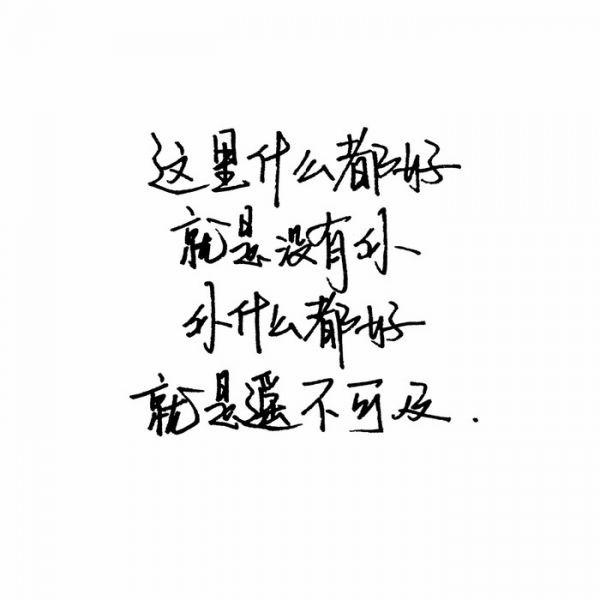 这里什么都好
就是没有尔
尔什么都好
就是遥不可及.